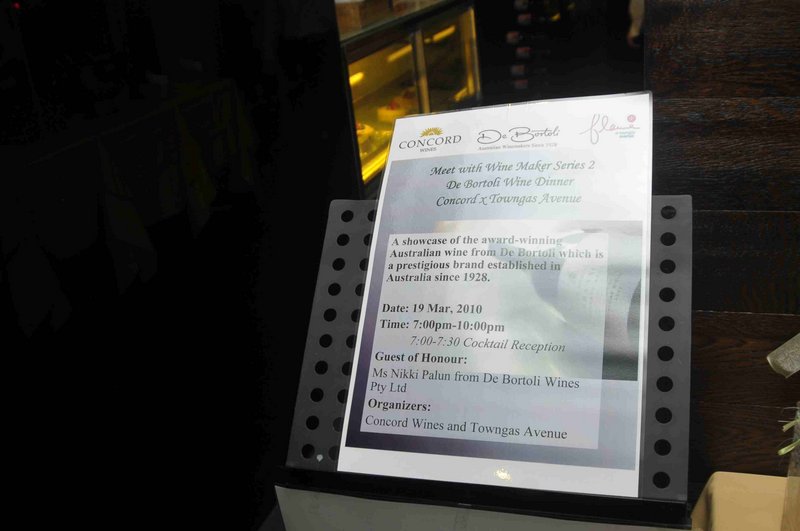 CONCORD
WINES
De Bortoli
Australian Winemakers Since 1928
flame
Meet with Wine Maker Series 2
De Bortoli Wine Dinner
Concord x Towngas Avenue
A showcase of the award-winning
Australian wine from De Bortoli which is
a prestigious brand established in
Australia since 1928.
Date: 19 Mar, 2010
Time: 7:00pm-10:00pm
7:00-7:30 Cocktail Reception
Guest of Honour:
Ms Nikki Palun from De Bortoli Wines
Pty Ltd
Organizers:
Concord Wines and Towngas Avenue